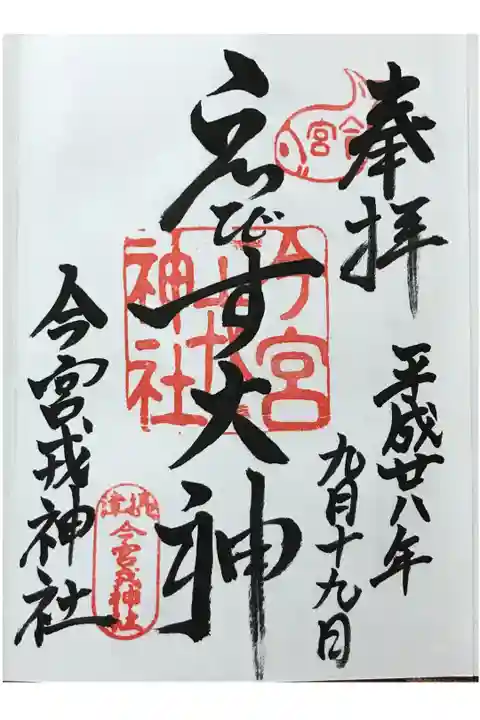 奉拝
今宮
平成廿八年
九月十九日
ゑびす大神
今宮戎神社
今宮戎神社
摂津
今宮戎神社